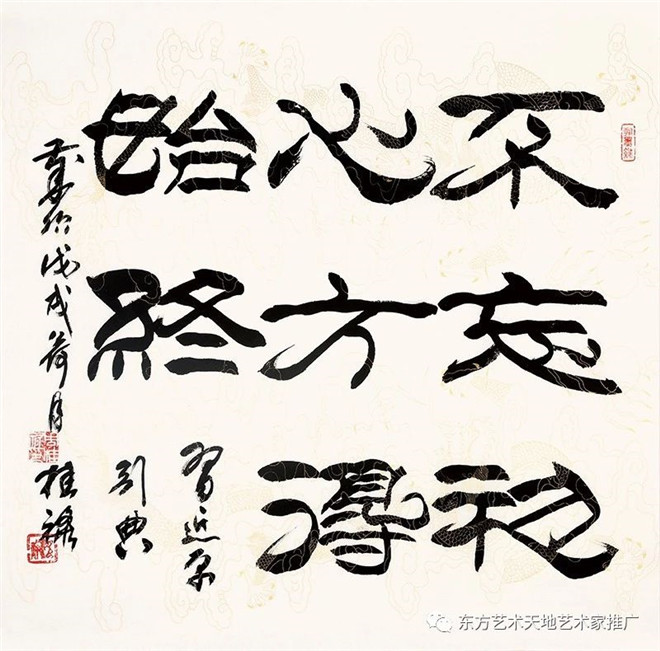 不忘初
心方得
始終
習近平
引典
戊戌荷月
桂
东方艺术天地艺术家推广